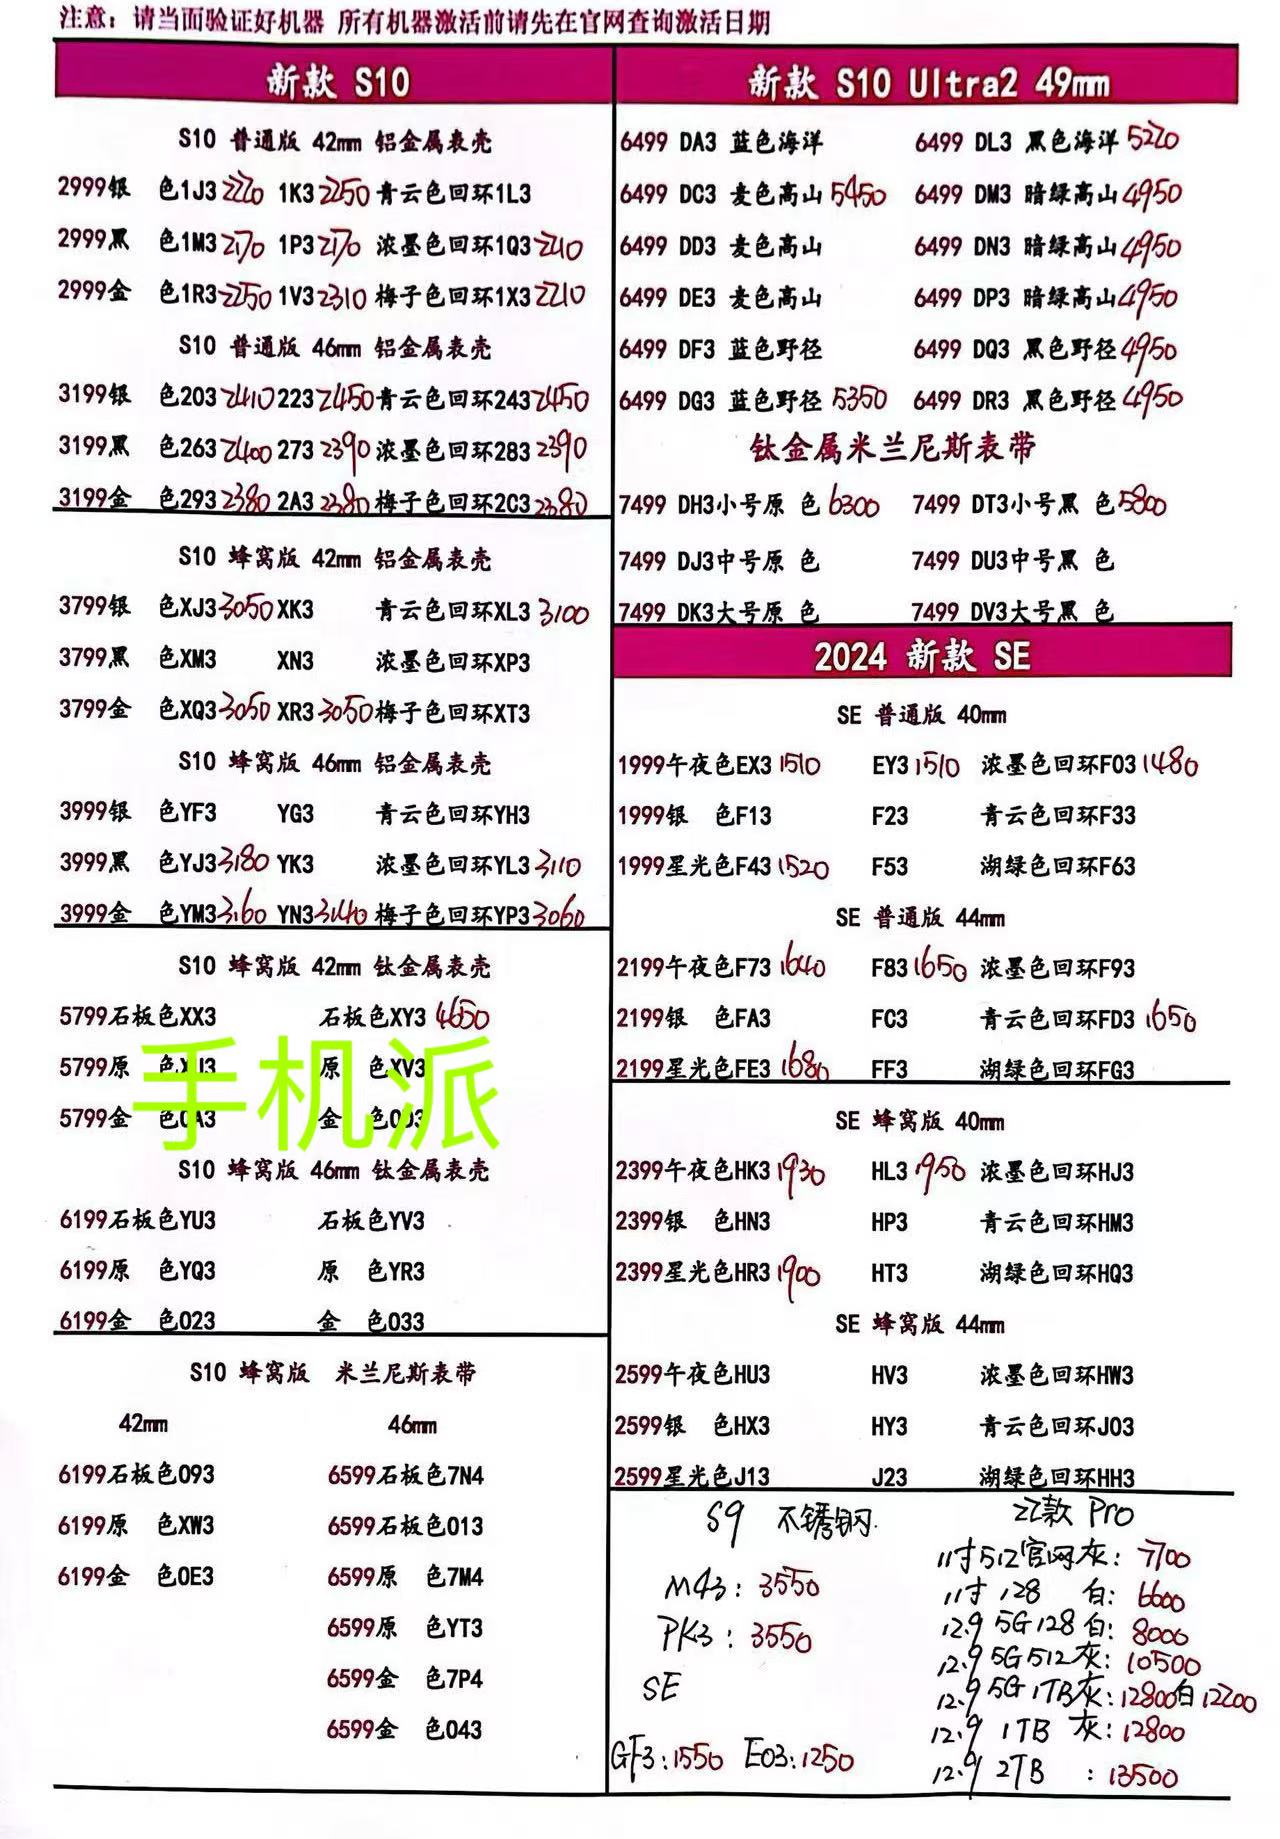 注意：请当面验证好机器 所有机器激活前请先在官网查询激活日期
新款 S10
S10 普通版 42mm 铝金属表壳
2999银 色1J3 2220 1K3 2250 青云色回环1L3
2999黑 色1M3 2170 1P3 2170 浓墨色回环1Q3 2210
2999金 色1R3 2250 1V3 2310 梅子色回环1X3 2210
S10 普通版 46mm 铝金属表壳
3199银 色203 2410 223 2450 青云色回环243 2450
3199黑 色263 2400 273 2390 浓墨色回环283 2390
3199金 色293 2380 2A3 2380 梅子色回环2C3 2380
S10 蜂窝版 42mm 铝金属表壳
3799银 色XJ3 3050 XK3 青云色回环XL3 3100
3799黑 色XM3 XN3 浓墨色回环XP3
3799金 色XQ3 3050 XR3 3050 梅子色回环XT3
S10 蜂窝版 46mm 铝金属表壳
3999银 色YF3 YG3 青云色回环YH3
3999黑 色YJ3 3180 YK3 浓墨色回环YL3 3110
3999金 色YM3 3160 YN3 3140 梅子色回环YP3 3060
S10 蜂窝版 42mm 钛金属表壳
5799石板色XX3 石板色XY3 4650
5799原 色XU3 原 色XV3
5799金 色0A3 金 色0D3
手机派
S10 蜂窝版 46mm 钛金属表壳
6199石板色YU3 石板色YV3
6199原 色YQ3 原 色YR3
6199金 色023 金 色033
S10 蜂窝版 米兰尼斯表带
42mm 46mm
6199石板色093 6599石板色7N4
6199原 色XW3 6599石板色013
6199金 色0E3 6599原 色7M4
6599原 色YT3
6599金 色7P4
6599金 色043
新款 S10 Ultra2 49mm
6499 DA3 蓝色海洋 6499 DL3 黑色海洋 5220
6499 DC3 麦色高山 5450 6499 DM3 暗绿高山 4950
6499 DD3 麦色高山 6499 DN3 暗绿高山 4950
6499 DE3 麦色高山 6499 DP3 暗绿高山 4950
6499 DF3 蓝色野径 6499 DQ3 黑色野径 4950
6499 DG3 蓝色野径 5350 6499 DR3 黑色野径 4950
钛金属米兰尼斯表带
7499 DH3小号原 色 6300 7499 DT3小号黑 色 5800
7499 DJ3中号原 色 7499 DU3中号黑 色
7499 DK3大号原 色 7499 DV3大号黑 色
2024 新款 SE
SE 普通版 40mm
1999午夜色EX3 1510 EY3 1510 浓墨色回环F03 1480
1999银 色F13 F23 青云色回环F33
1999星光色F43 1520 F53 湖绿色回环F63
SE 普通版 44mm
2199午夜色F73 1640 F83 1650 浓墨色回环F93
2199银 色FA3 FC3 青云色回环FD3 1650
2199星光色FE3 1680 FF3 湖绿色回环FG3
SE 蜂窝版 40mm
2399午夜色HK3 1930 HL3 1950 浓墨色回环HJ3
2399银 色HN3 HP3 青云色回环HM3
2399星光色HR3 1900 HT3 湖绿色回环HQ3
SE 蜂窝版 44mm
2599午夜色HU3 HV3 浓墨色回环HW3
2599银 色HX3 HY3 青云色回环J03
2599星光色J13 J23 湖绿色回环HH3
S9 不锈钢
M43：3550
PK3：3550
SE
GF3：1550 E03：1250
22款 Pro
11寸512官网灰：7700
11寸 128 白：6600
12.9 5G 128 白：8000
12.9 5G 512 灰：10500
12.9 5G 1TB灰：12800白12200
12.9 1TB 灰：12800
12.9 2TB ：13500